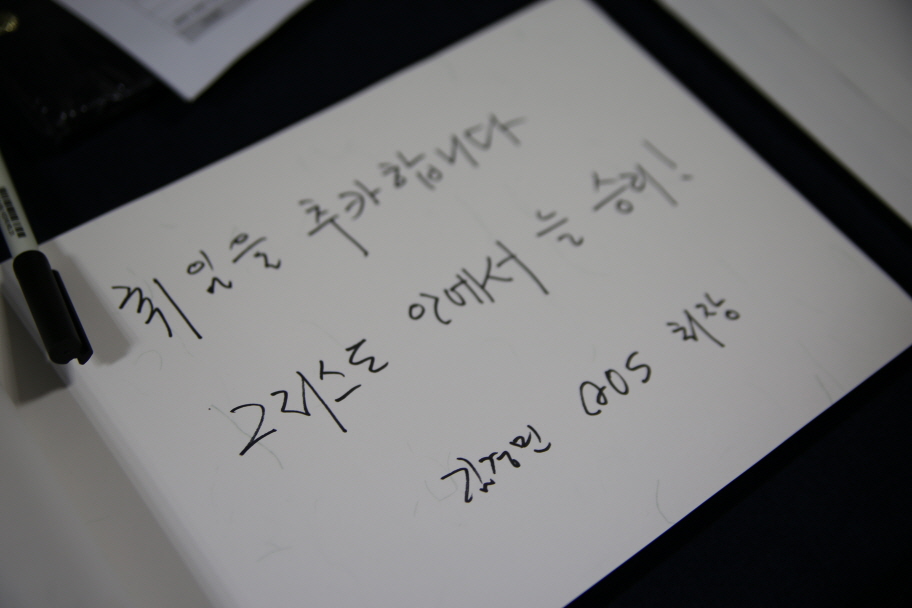 취임을 추카합니다
그리스도 안에서 늘 승리!
김정민 GOS 회장